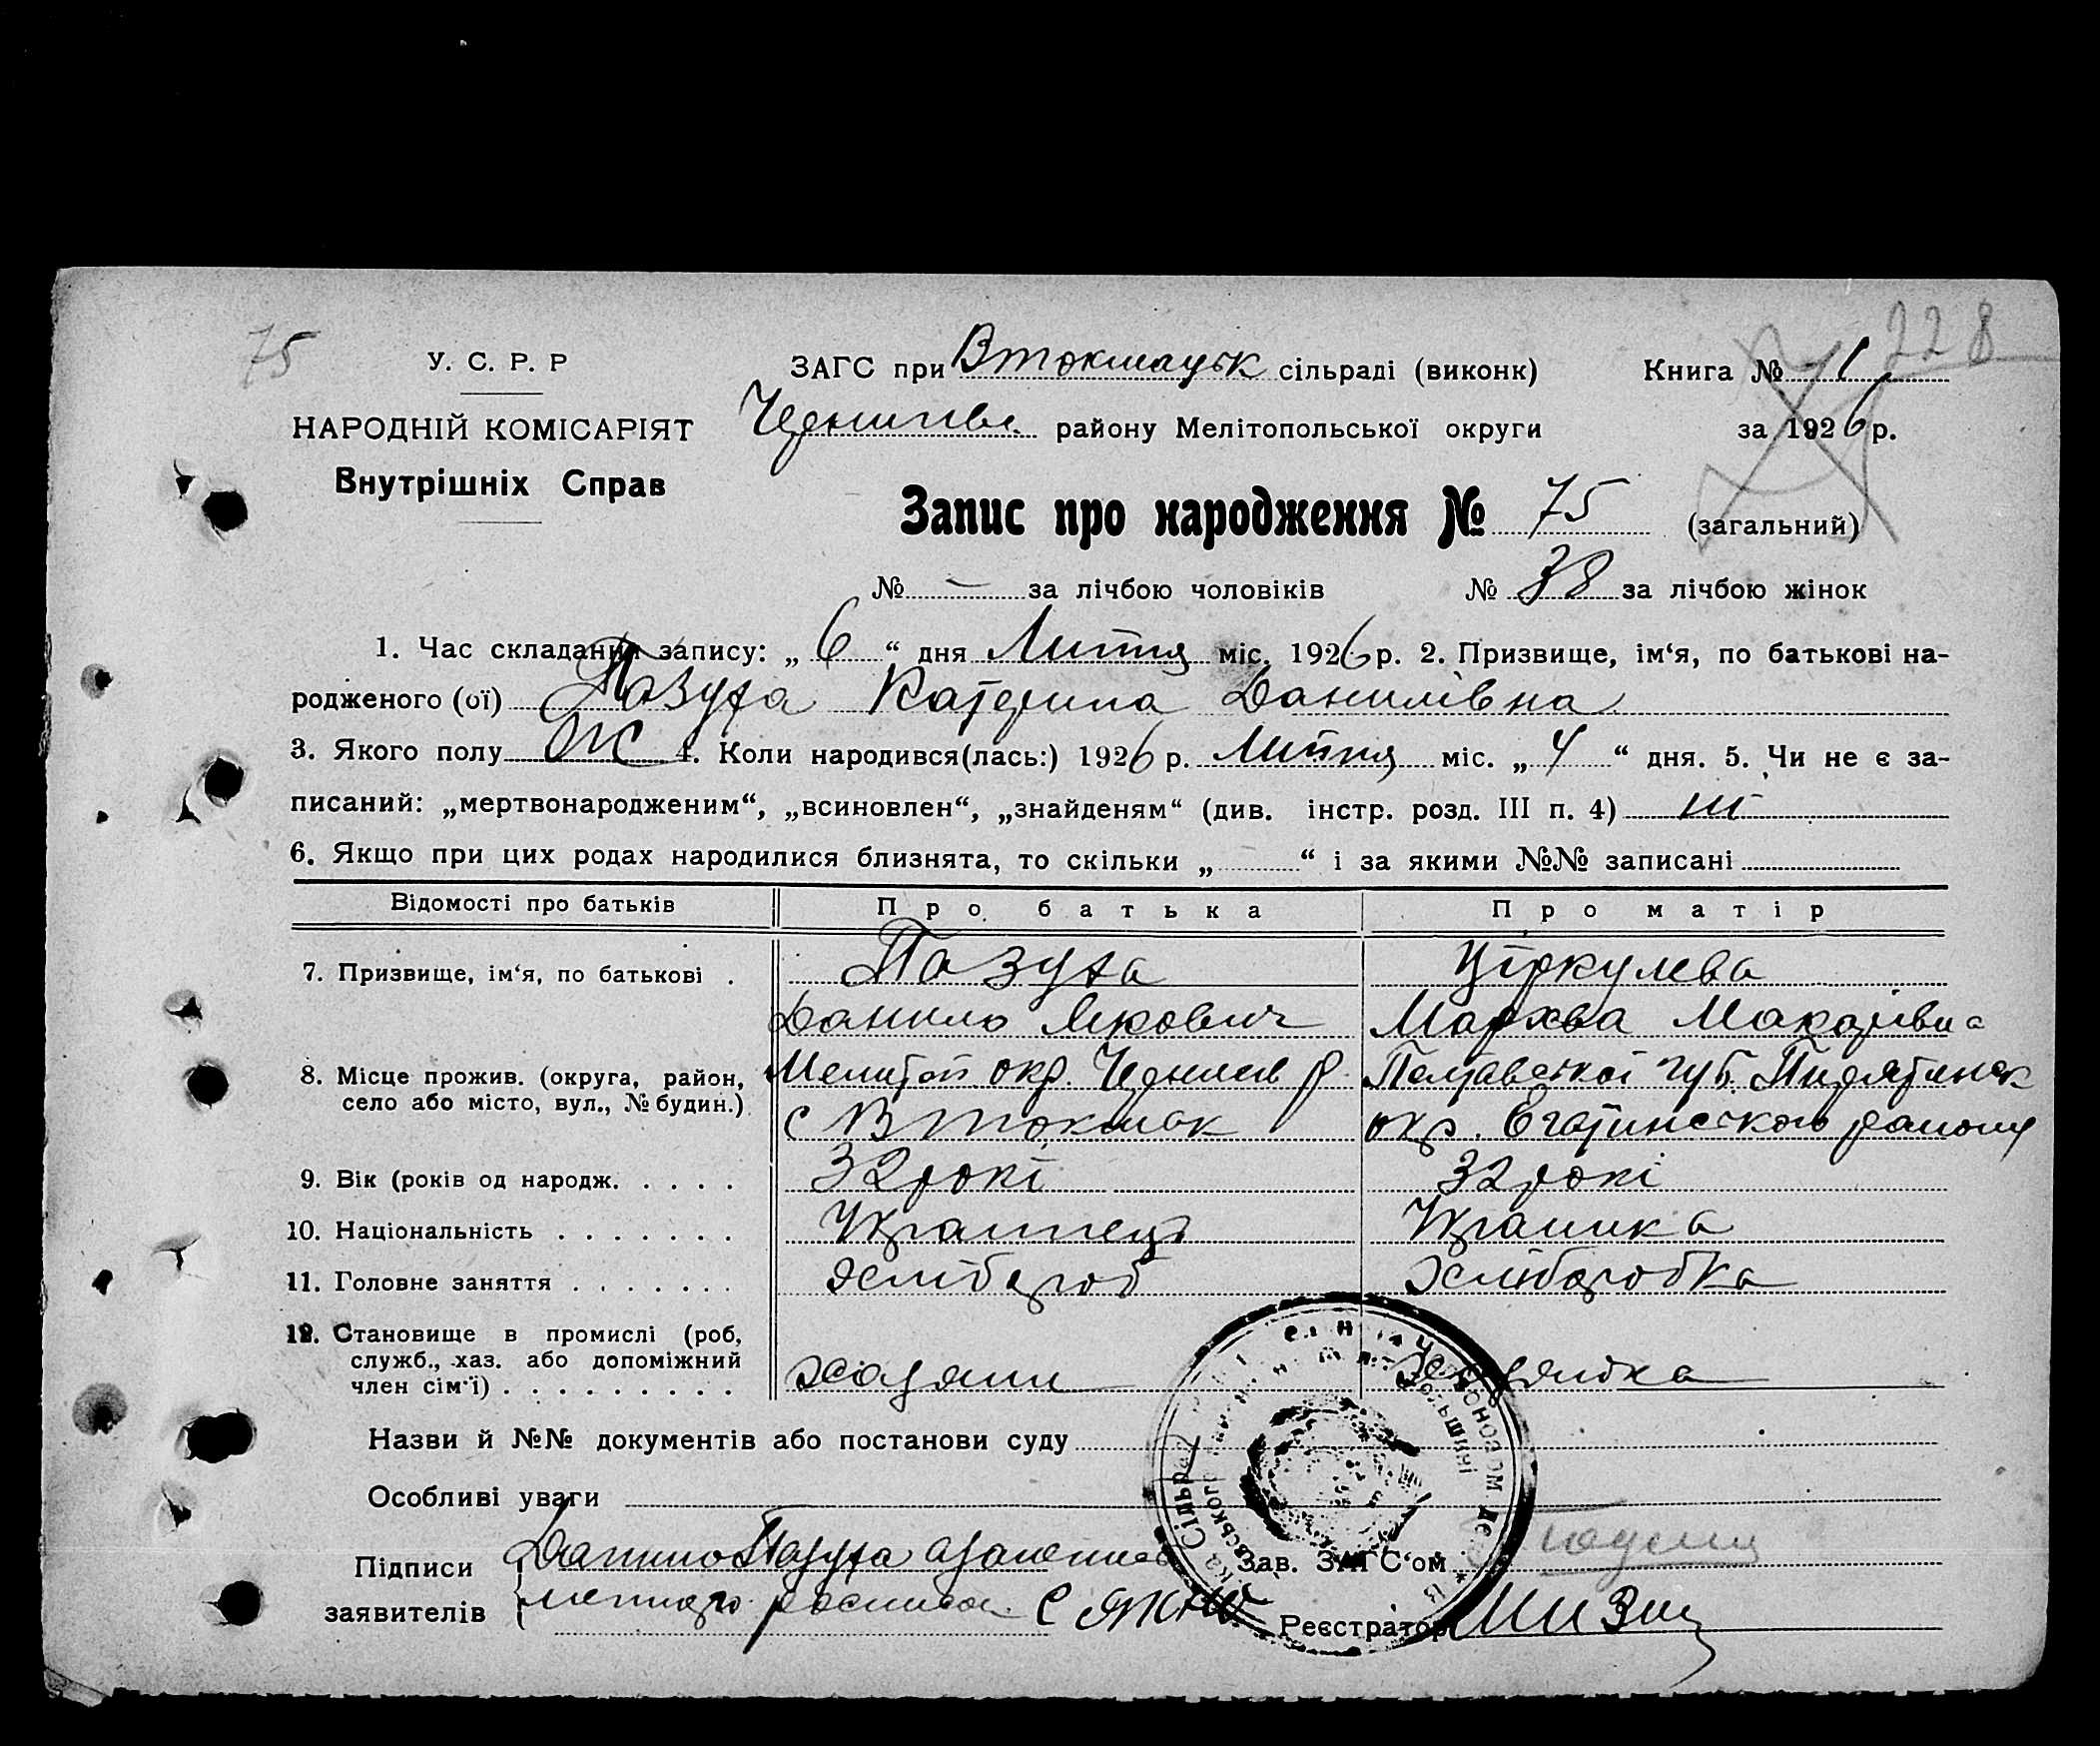 75
228
У. С. Р. Р
НАРОДНІЙ КОМІСАРІЯТ
Внутрішніх Справ
ЗАГС при Втокмацьк сільраді (виконк)
Книга № 1
Чернигівс. району Мелітопольської округи
за 1926 р.
Запис про народження № 75 (загальний)
№ — за лічбою чоловіків № 38 за лічбою жінок
1. Час складання запису: „6“ дня Липня міс. 1926 р. 2. Призвище, ім‘я, по батькові на-
родженого (ої) Пазуха Катерина Данилівна
3. Якого полу Ж 4. Коли народився(лась:) 1926 р. Липня міс. „4“ дня. 5. Чи не є за-
писаний: „мертвонародженим“, „всиновлен“, „знайденям“ (див. інстр. розд. III п. 4)
6. Якщо при цих родах народилися близнята, то скільки „ “ і за якими №№ записані
Відомості про батьків Про батька Про матір
7. Призвище, ім‘я, по батькові . Пазуха Ціркулева
Данило Якович Мархва Макарівна
8. Місце прожив. (округа, район, село або місто, вул., № будин.) Мелитоп. окр. Чернигів р. Полтавської губ. Пирятинск
с Втокмак окр. району
9. Вік (років од народж. . . . . 32 рокі 32 рокі
10. Національність . . . . . . . Українець Українка
11. Головне заняття . . . . . . . Хлібороб Хліборобка
12. Становище в промислі (роб, служб., хаз. або допоміжний член сім‘ї) . . . . . . . . . хазяин
Назви й №№ документів або постанови суду
Особливі уваги
Підписи заявителів Данило Пазуха
Зав. ЗАГС‘ом
Реєстратор